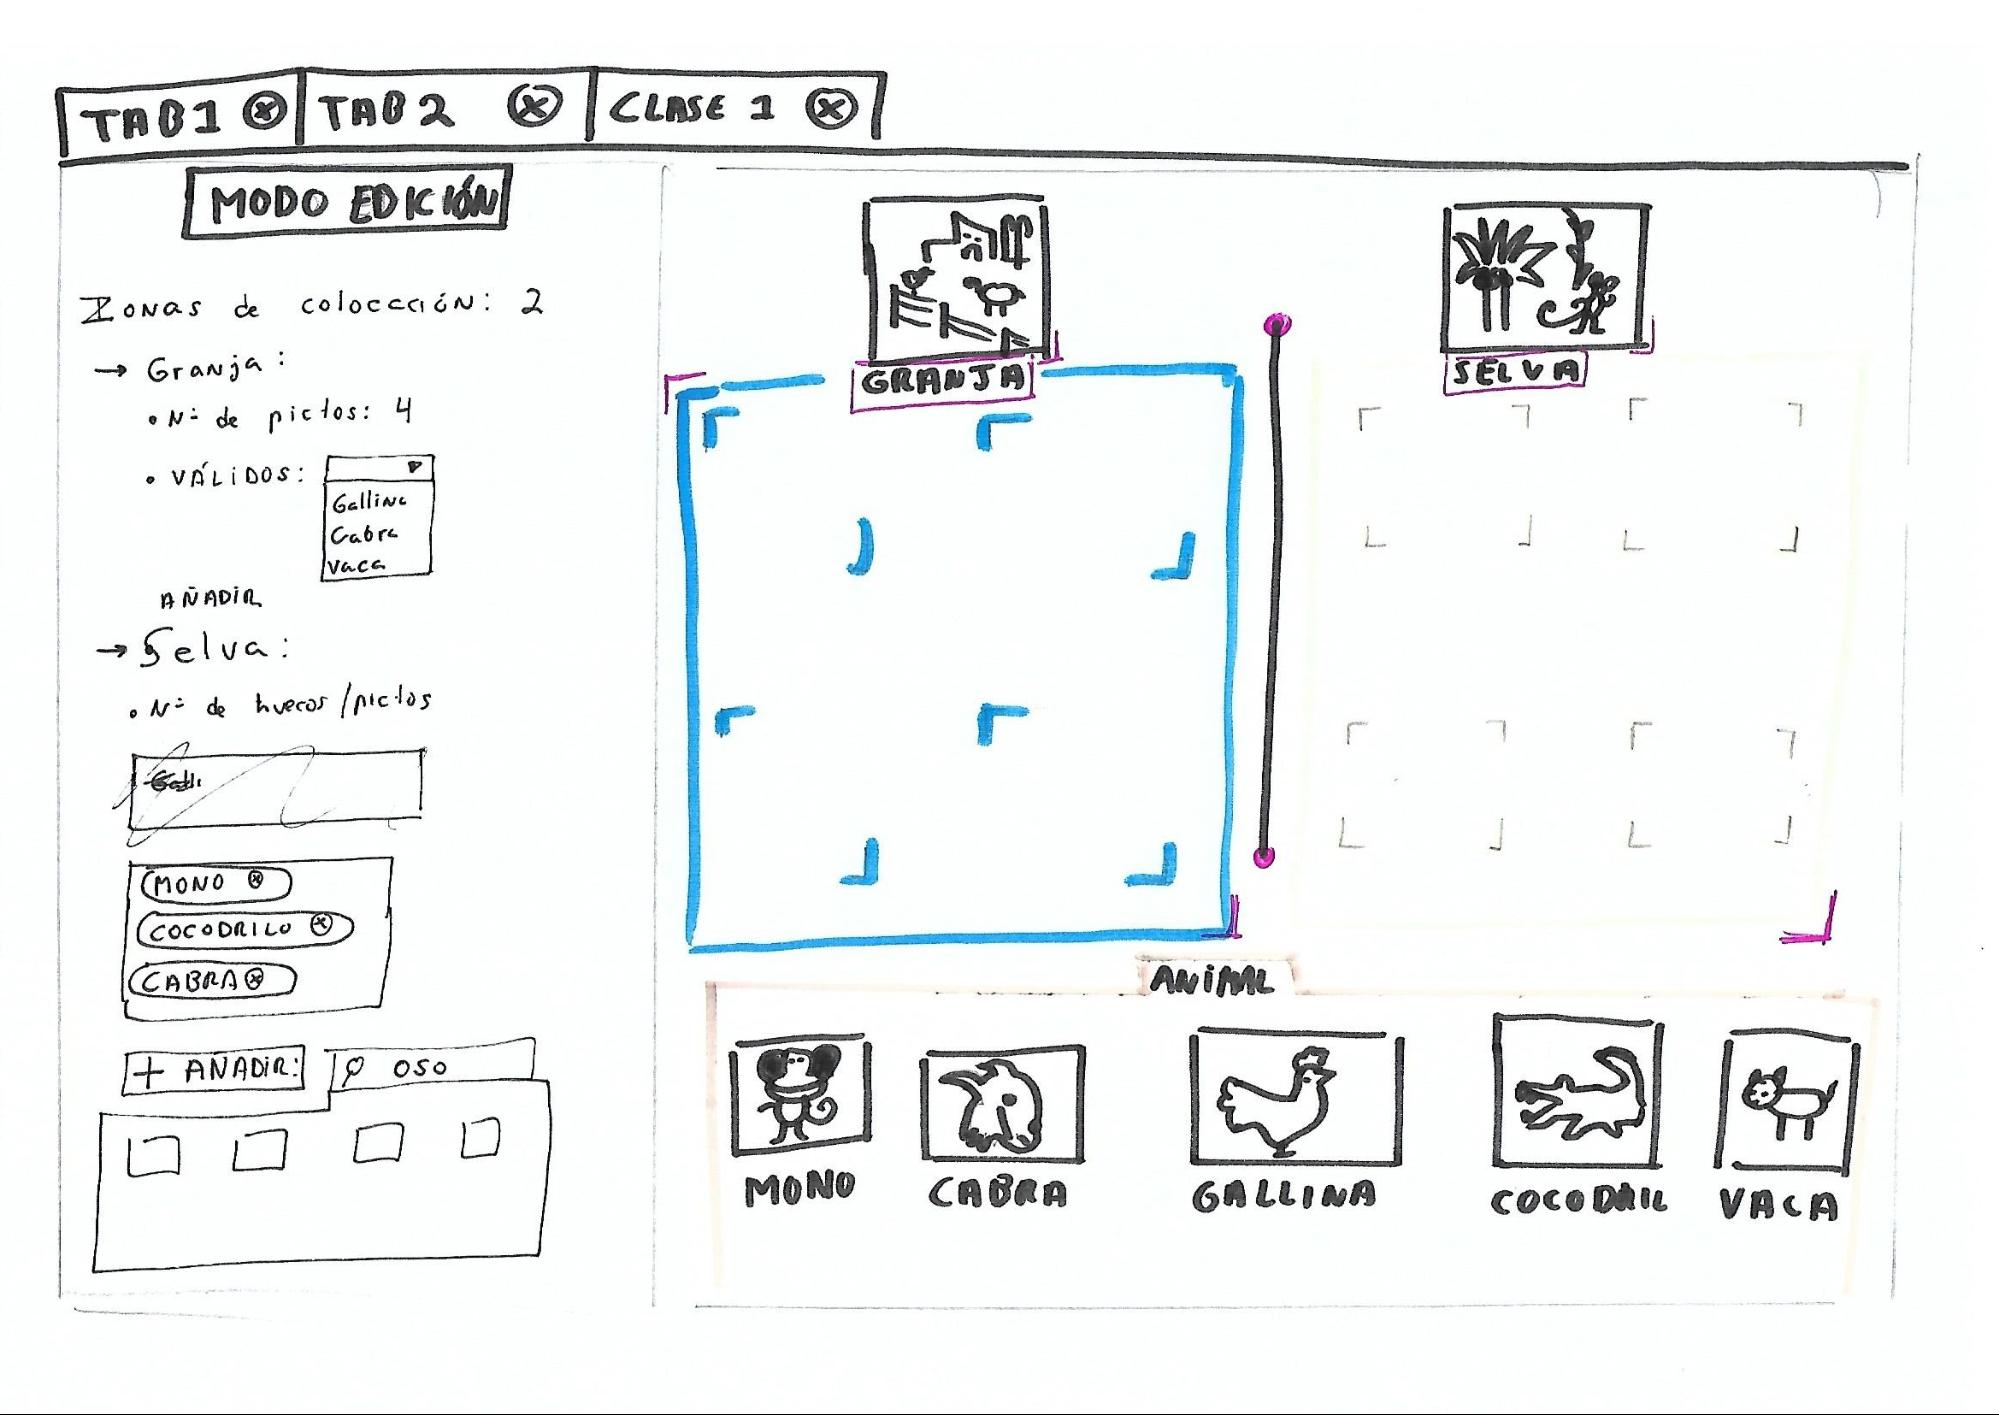 TAB1 ⓧ TAB 2 ⓧ CLASE 1 ⓧ
MODO EDICIÓN
Zonas de colocación: 2
→ Granja:
• Nº de pictos: 4
• VÁLIDOS:
Gallina
Cabra
Vaca
AÑADIR
→ Selva:
• Nº de huecos/pictos
MONO ⓧ
COCODRILO ⓧ
CABRA ⓧ
+ AÑADIR:
OSO
GRANJA
SELVA
ANIMAL
MONO
CABRA
GALLINA
COCODRIL
VACA